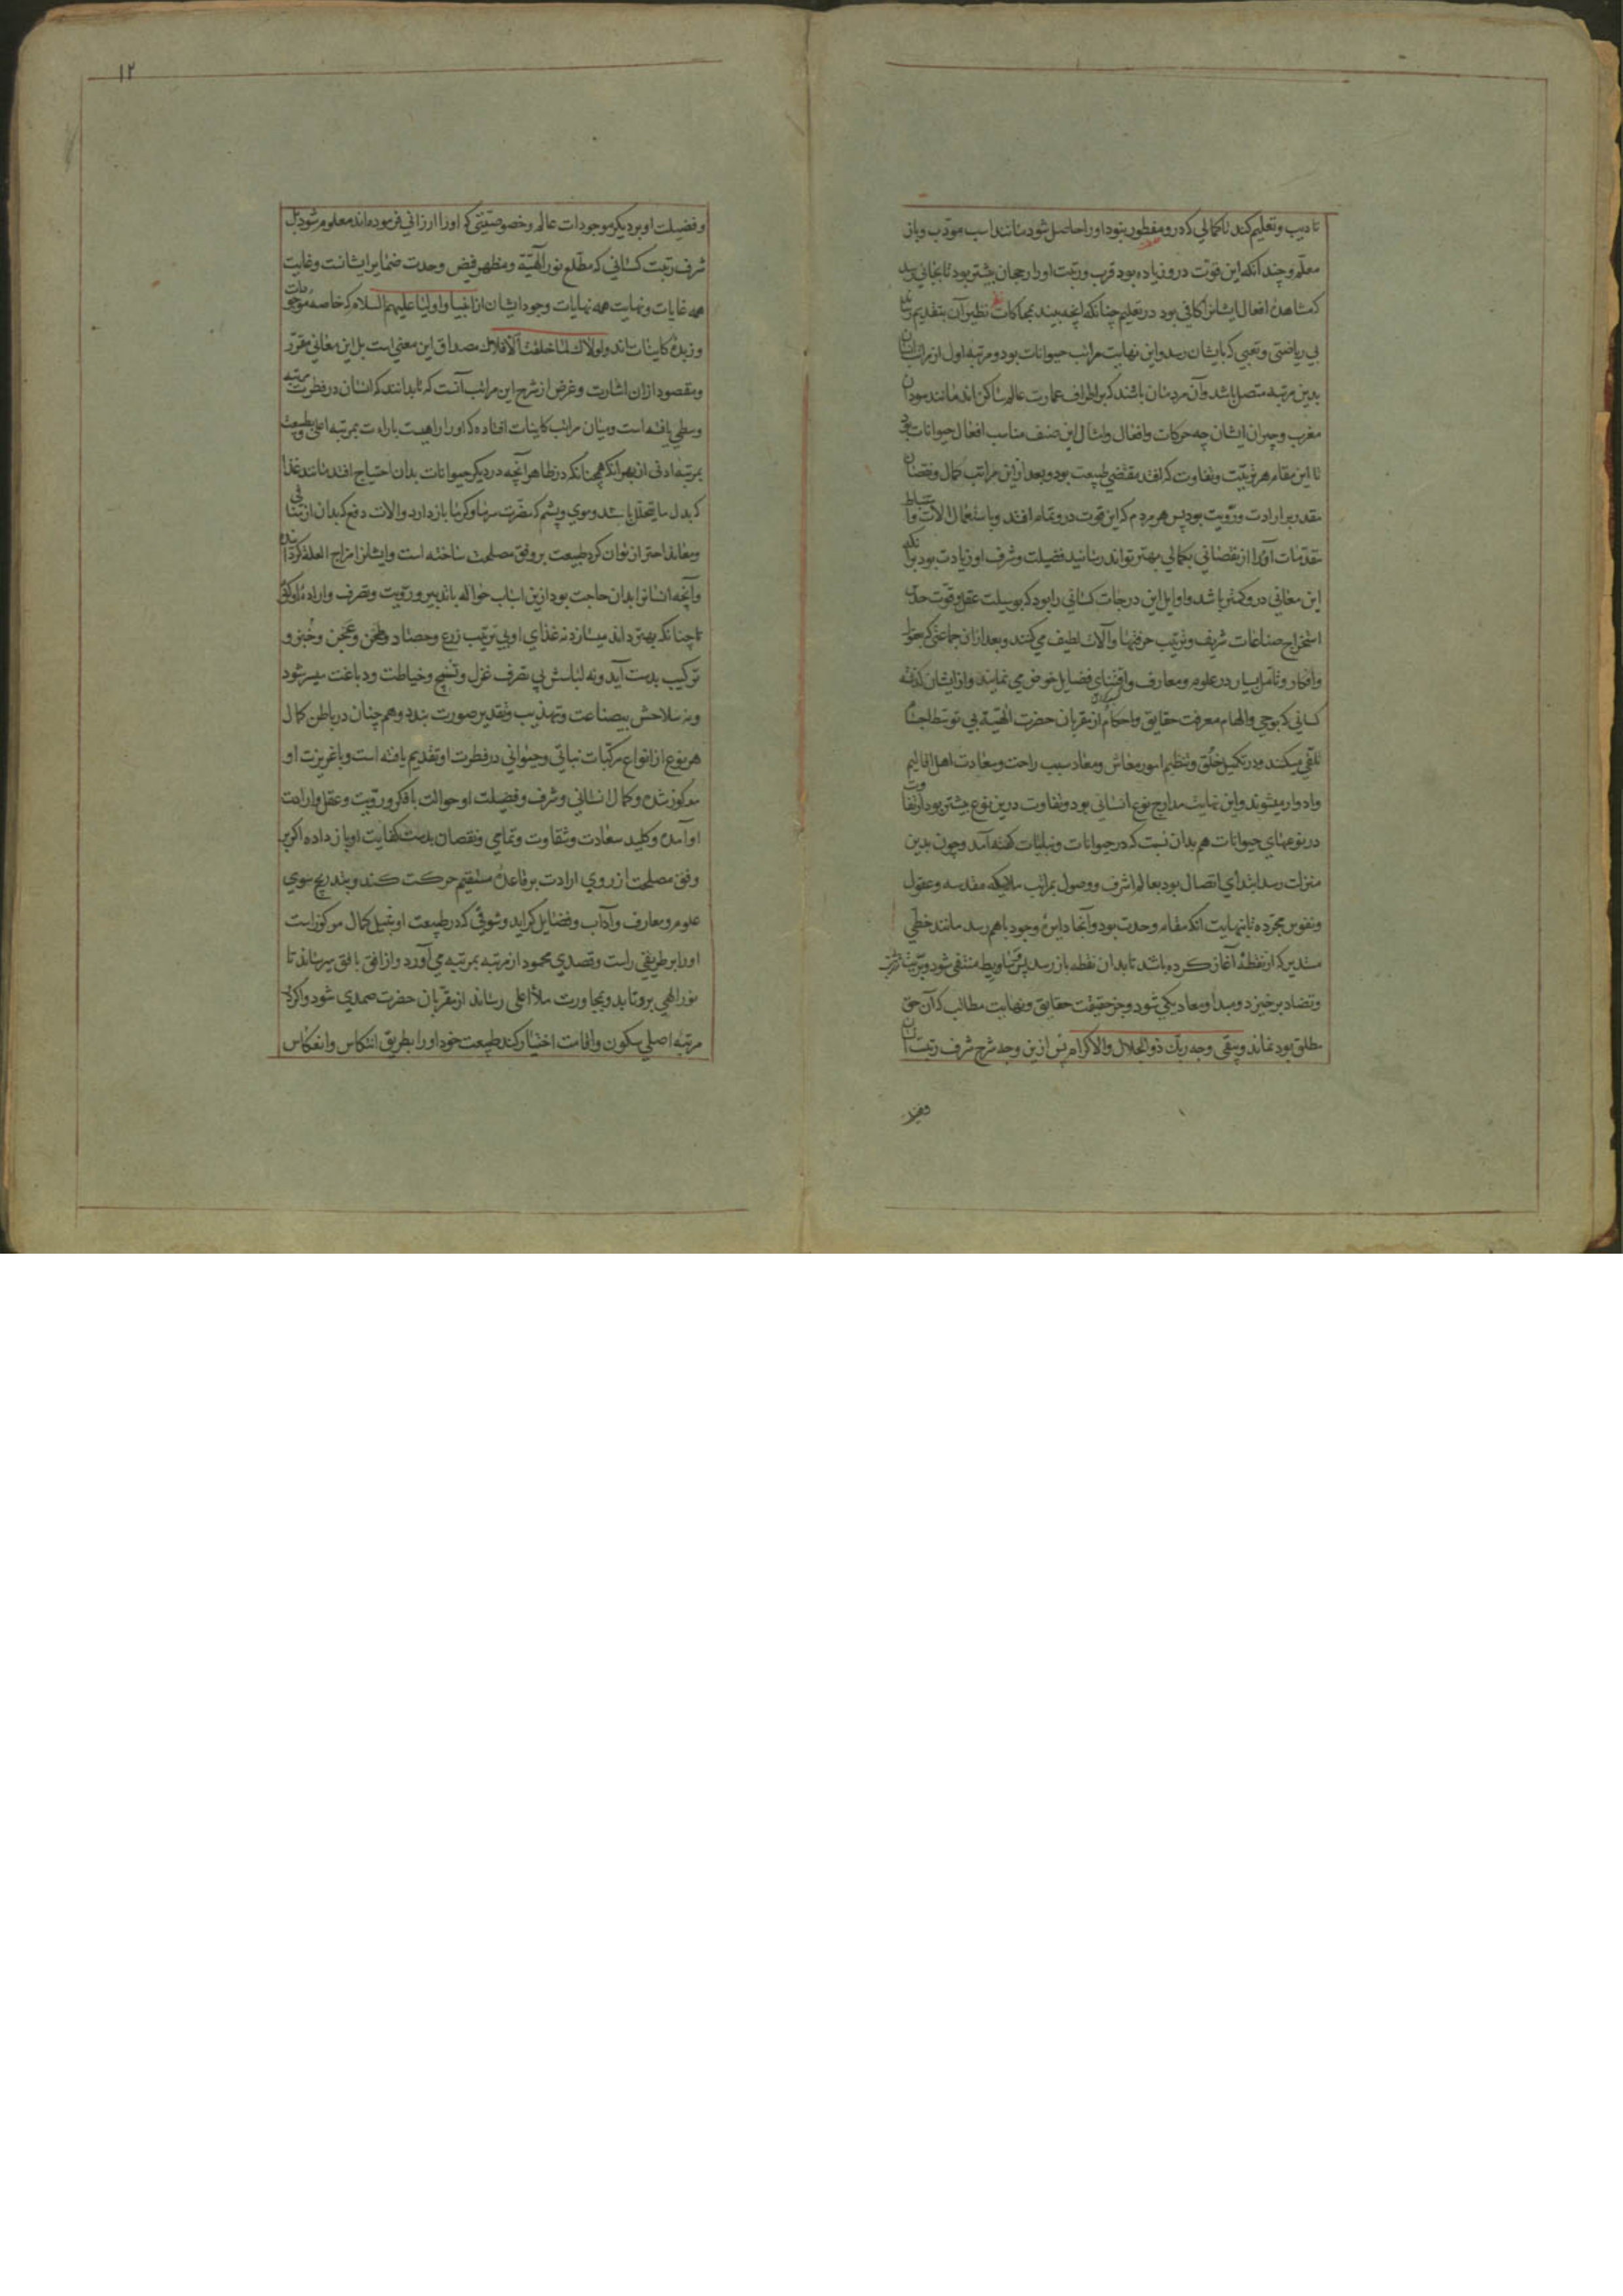 تادیب و تعلیم کند تا کمالی که درو مفطور نبود او را حاصل شود مانند اسب مودّب و باز
معلّم و چندانکه این قوّت درو زیاده بود قرب و رتبت او را رجحان بیشتر بود تا بجائی رسد
که مشاهدهٔ افعال ایشانرا کافی بود در تعلیم چنانکه آنچه بینند بمحاکات نظیر آن بتقدیم رسانند
بی ریاضتی و تعبی که بایشان رسد و این نهایت مراتب حیوانات بود و مرتبهٔ اول از مراتب انسان
بدین مرتبه متصل باشد و آن مردمان باشند که بر اطراف عمارت عالم ساکن اند مانند سودان
مغرب و چه حرکات و افعال و امثال این صنف مناسب افعال حیوانات بود
تا این مقام هر تربیّت و تفاوت که افتد مقتضی طبیعت بود و بعد از این مراتب کمال و نقصان
مقدر بر ارادت و رویّت بود پس هر مردم که این قوت درو تمام افتد و باستعمال الات و استنباط
مقدّمات آنرا از نقصانی بکمالی بهتر تواند رسانید فضیلت و شرف او زیادت بود بر آنکه
این معانی درو کمتر باشد و اوایل این درجات کسانی را بود که بوسیلت عقل و قوت حدس
استخراج صناعات شریف و ترتیب حرفتها و آلات لطیف می کنند و بعد از ان جماعتی که بعقول
و افکار و تامل بسیار در علوم و معارف و اقتنای فضایل خوض می نمایند و از ایشان گذشته
کسانی که بوحی و الهام معرفت حقایق و احکام از مقربان حضرت الهیّت بی توسّط اجسام
تلقّی میکنند و در تکمیل خلق و تنظیم امور معاش و معاد سبب راحت و سعادت اهل اقالیم
و ادوار میشوند و این نهایت مدارج نوع انسانی بود و تفاوت درین نوع بیشتر بود از تفاوت
در نوعهای حیوانات هم بدان نسبت که در حیوانات و نباتات گفته آمد و چون بدین
منزلت رسد ابتدای اتصال بود بعالم اشرف و وصول بمراتب ملایکه مقدسه و عقول
و نفوس مجرّده تا بنهایت انکه مقام وحدت بود و آنجا دایرهٔ وجود باهم رسد مانند خطّی
مستدیر که از نقطهٔ آغاز کرده باشد تا بدان نقطه باز رسد پس وسایط منتفی شود و ترتّب
و تضاد برخیزد و مبدا و معاد یکی شود و جز حقیقت حقایق و نهایت مطالب که آن حق
مطلق بود نماند و یبقی وجه ربّک ذو الجلال والاکرام پس ازین وجه شرح شرف رتبت انسان
و فضیلت او بر دیگر موجودات عالم و خصوصیّتی که او را ارزانی فرموده اند معلوم شود بل
شرف رتبت کسانی که مطلع نور الهیّت و مظهر فیض وحدت ضمایر ایشانست و غایت
همه غایات و نهایت همه نهایات وجود ایشان از انبیا و اولیا علیهم السلام که خاصهٔ موجودات
و زبدهٔ کاینات اند و لولاک لما خلقت الافلاک مصداق این معنی است بل این معانی مقرّر
و مقصود ازان اشارت و غرض از شرح این مراتب آنست که تا بدانند که انسان در فطرت مرتبه
وسطی یافته است و میان مراتب کاینات افتاده که او را راهست بارادت بمرتبه اعلی و بطبیعت
بمرتبهٔ ادنی از بهر انکه همچنانکه در ظاهر آنچه در دیگر حیوانات بدان احتیاج افتد مانند غذا
که بدل ما یتحلّل باشد و موی و پشم که مضرّت سرما و گرما باز دارد و الات دفع که بدان از منافی
و معاند احتراز توان کرد طبیعت بر وفق مصلحت ساخته است و ایشانرا مزاح العلة کرد اند
و آنچه انسانرا بدان حاجت بود ازین اسباب حواله بتدبیر و رویّت و تصرف و ارادهٔ او کرد
تا چنانکه بهتر داند میسازد نه غذای او بی ترتیب زرع و حصاد و طحن و عجن و خبز و
ترکیب بدست آید و نه لباسش بی تصرف غزل و نسج و خیاطت و دباغت میسر شود
و نه سلاحش بیصناعت و تهذیب و تقدیر صورت بندد و همچنان در باطن کمال
هر نوع از انواع مرکّبات نباتی و حیوانی در فطرت او تقدیم یافته است و با غریزت او
مرکوز شده و کمال انسانی و شرف و فضیلت او حوالت با فکر و رویّت و عقل و ارادت
او آمده و کلید سعادت و شقاوت و تمامی و نقصان بدست کفایت او باز داده اگر بر
وفق مصلحت از روی ارادت بر قاعدهٔ مستقیم حرکت کند و بتدریج سوی
علوم و معارف و آداب و فضایل گراید و شوقی که در طبیعت او بنیل کمال مرکوز است
او را بر طریقی راست و قصدی محمود از مرتبه بمرتبه می آورد و از افق بافق میرساند تا
نور الهی برو تابد و بمجاورت ملأ اعلی رساند از مقرّبان حضرت صمدی شود و اگر در
مرتبهٔ اصلی سکون و اقامت اختیار کند طبیعت خود او را بطریق انتکاس و انعکاس